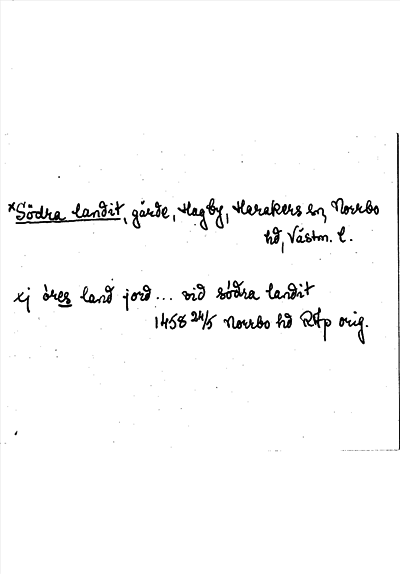 *Södra landit, gärde, Hagby, Harakers sn, Norrbo
hd, Västm. l.
xj öres land jord... vid södra landit
1458 24/5 Norrbo hd RAp orig.